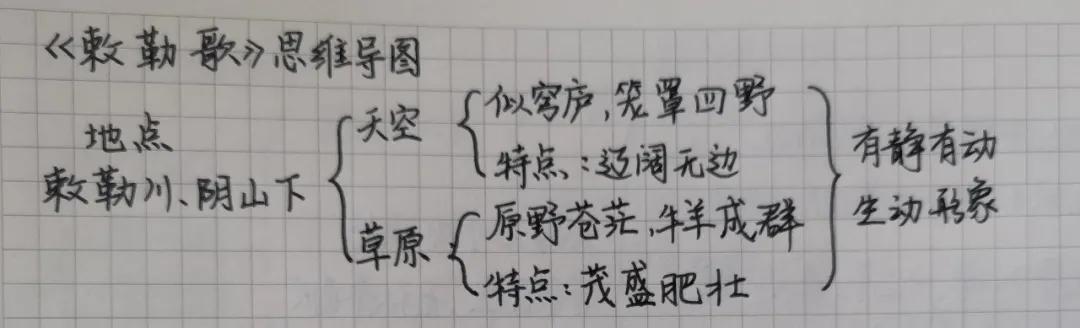 《敕勒歌》思维导图
地点
敕勒川、阴山下
天空
似穹庐,笼罩四野
特点:辽阔无边
草原
原野苍茫,牛羊成群
特点:茂盛肥壮
有静有动
生动形象